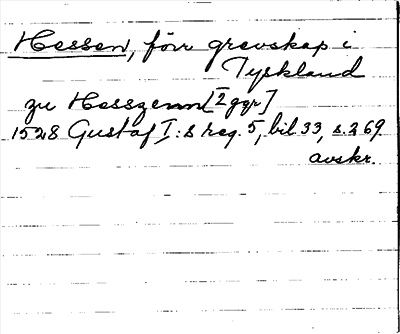 Hessen, förr grevskap i
Tyskland
zu Hesszenn [2 ggr]
1528 Gustaf I:s reg. 5, bil 33, s. 269.
avskr.